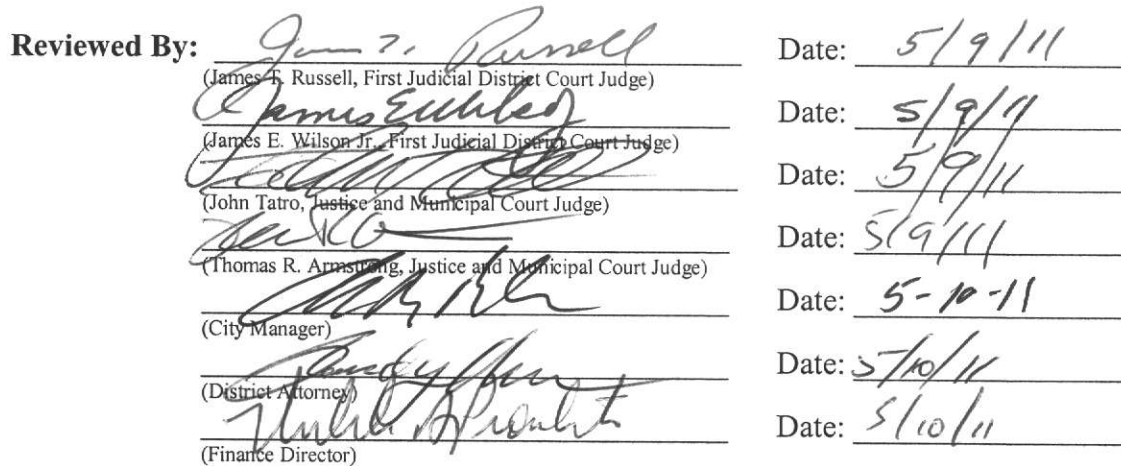 Reviewed By: James T. Russell Date: 5/9/11
(James T. Russell, First Judicial District Court Judge)
Date: 5/9/11
(James E. Wilson Jr., First Judicial District Court Judge)
Date: 5/9/11
(John Tatro, Justice and Municipal Court Judge)
Date: 5/9/11
(Thomas R. Armstrong, Justice and Municipal Court Judge)
Date: 5-10-11
(City Manager)
Date: 5/10/11
(District Attorney)
Date: 5/10/11
(Finance Director)